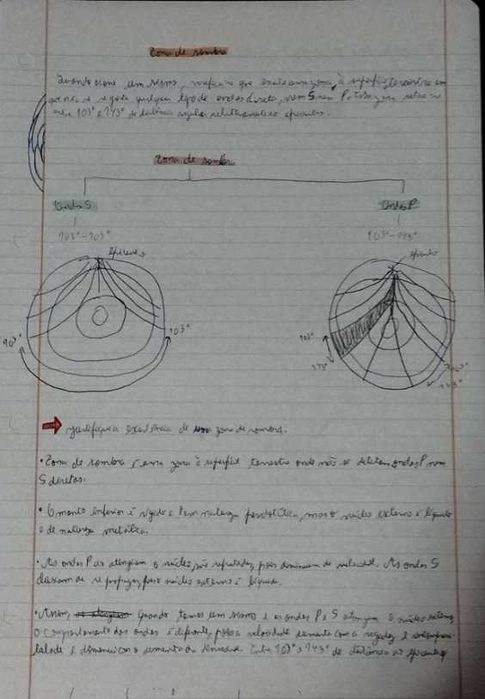 Zona de sombra
Quando ocorre um sismo, verifica-se que existe uma zona, à superfície terrestre em
que não se regista qualquer tipo de ondas diretas, nem S nem P. Esta zona
entre 103° e 143° de distância angular relativamente ao epicentro.
Zona de sombra
Ondas S
Ondas P
103°-103°
103°-143°
epicentro
epicentro
103°
103°
103°
143°
143°
Justifique a existência de uma zona de sombra.
• Zona de sombra é uma zona à superfície terrestre onde não se detetam ondas P nem
S diretas.
• O manto inferior é rígido e tem natureza peridotítica, mas o núcleo externo é líquido
e de natureza metálica.
• As ondas P ao atingirem o núcleo, são refratadas, pois diminuem de velocidade. As ondas S
deixam de se propagar, pois o núcleo externo é líquido.
• Assim, Quando temos um sismo e as ondas P e S atingem o núcleo externo
o comportamento das ondas é diferente, pois a velocidade aumenta com a rigidez e
e diminui com o aumento da densidade. Entre 103° e 143° de distância ao epicentro